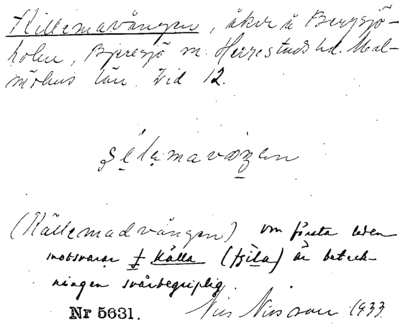 Killemavången, åker å Bergsjö-
holm, Bjeresjö sn. Herrestads hd. Mal-
möhus län. Vid 12.
(Källemadvången) om första leden
motsvarar + Källa är beteck-
ningen svårbegriplig.
Nr 5631. Nils Nilsson 1933.